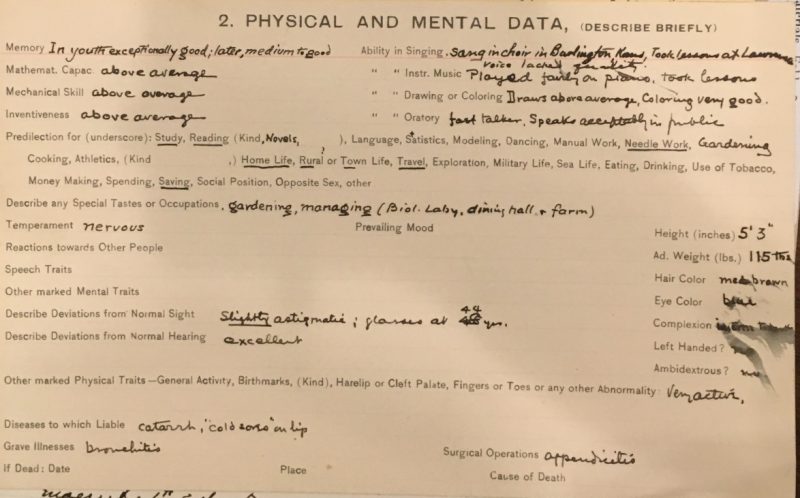 2. PHYSICAL AND MENTAL DATA, (DESCRIBE BRIEFLY)
Memory In youth exceptionally good; later, medium to good Ability in Singing. sang in choir in Burlington Kans, Took lessons at Lawrence
voice lacked
Mathemat. Capac. above average " " Instr. Music Played fairly on piano, took lessons
Mechanical Skill above average " " Drawing or Coloring Draws above average, Coloring very good.
Inventiveness above average " " Oratory fast talker, Speaks acceptably in public
Predilection for (underscore): Study, Reading (Kind, Novels, ), Language, Satistics, Modeling, Dancing, Manual Work, Needle Work, Gardening
Cooking, Athletics, (Kind ,) Home Life, Rural or Town Life, Travel, Exploration, Military Life, Sea Life, Eating, Drinking, Use of Tobacco,
Money Making, Spending, Saving, Social Position, Opposite Sex, other
Describe any Special Tastes or Occupations. gardening, managing (Biol. Laby, dining hall, & farm)
Temperament nervous Prevailing Mood
Height (inches) 5' 3"
Reactions towards Other People
Ad. Weight (lbs.) 115 lbs
Speech Traits
Hair Color med brown
Other marked Mental Traits
Eye Color blue
Describe Deviations from Normal Sight Slightly astigmatic; glasses at 44 yrs.
Complexion
Describe Deviations from Normal Hearing excellent
Left Handed? no
Ambidextrous? no
Other marked Physical Traits—General Activity, Birthmarks, (Kind), Harelip or Cleft Palate, Fingers or Toes or any other Abnormality: Very active,
Diseases to which Liable catarrh, "cold sores" on lip
Grave Illnesses bronchitis Surgical Operations appendicitis
If Dead: Date Place Cause of Death